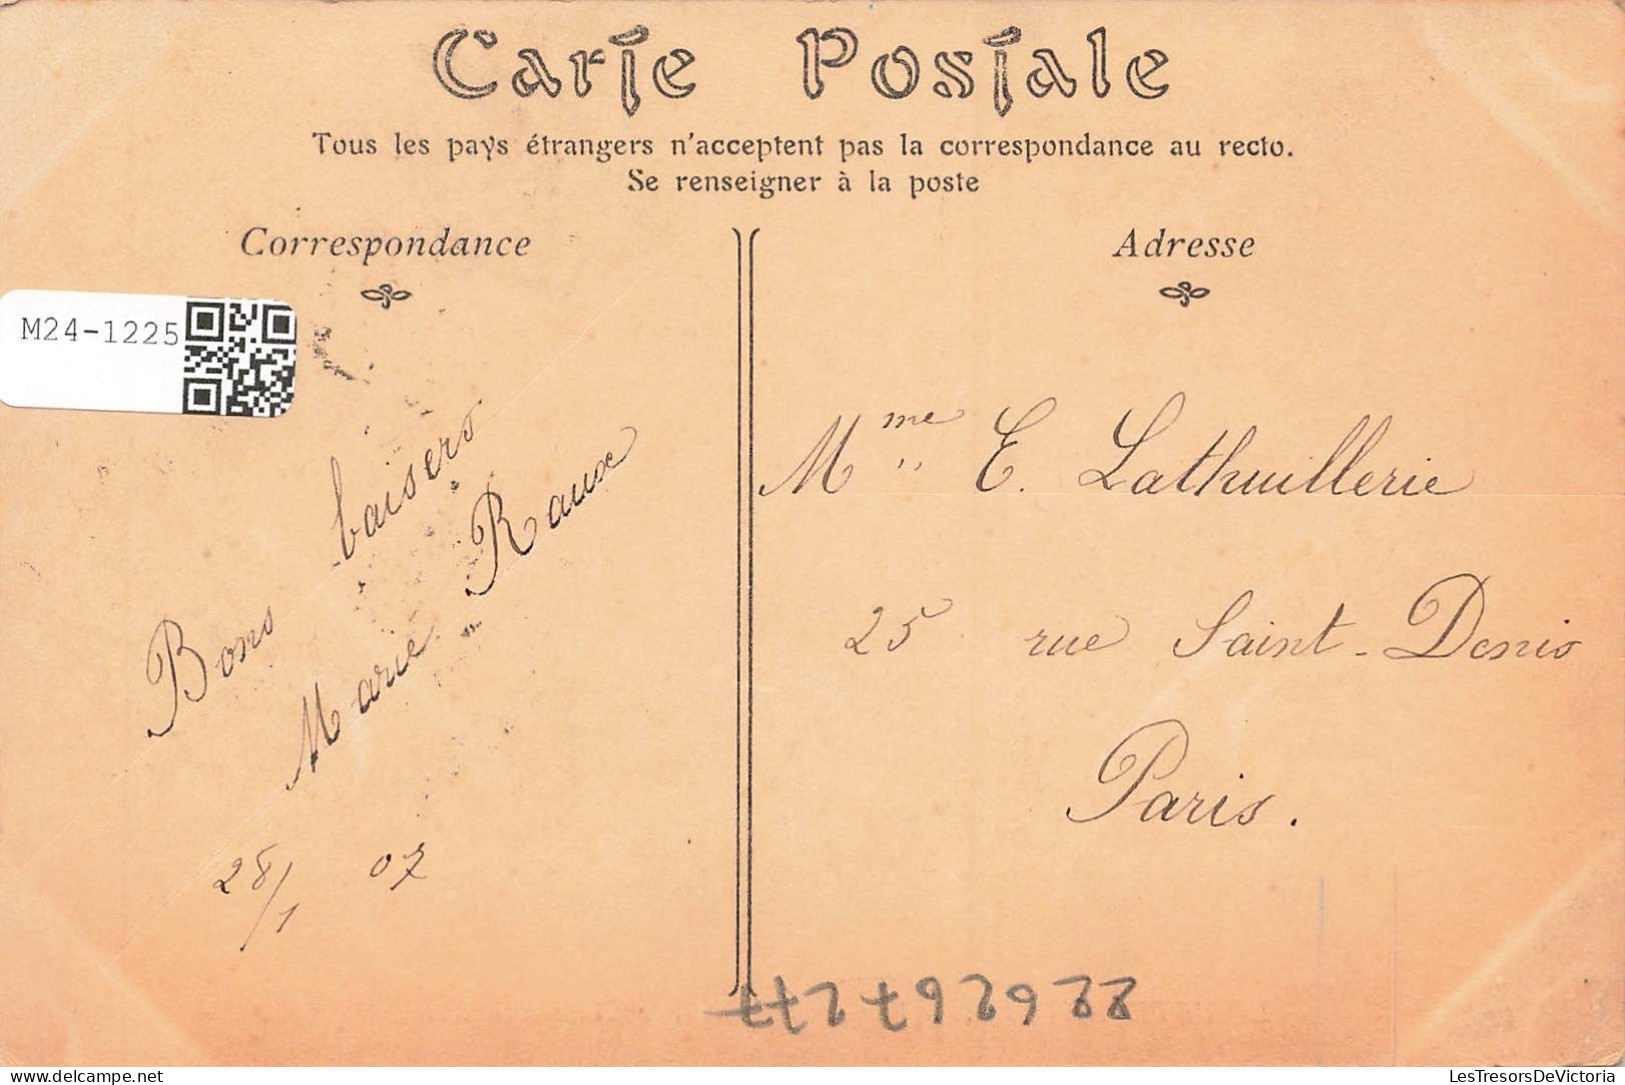 Carte Postale
Tous les pays étrangers n'acceptent pas la correspondance au recto.
Se renseigner à la poste
Correspondance
Adresse
M24-1225
Bons baisers
Marie Raux
28/1 07
Mme E. Lathuillerie
25 rue Saint-Denis
Paris.
LesTresorsDeVictoria